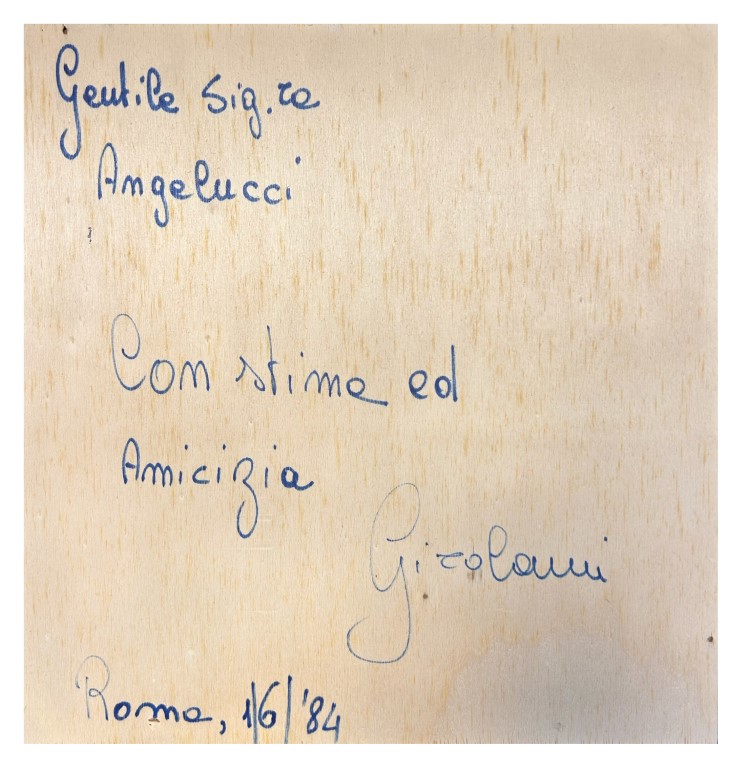 Gentile Sig.ra
Angelucci
Con stima ed
Amicizia
Girolami
Roma, 1/6/'84